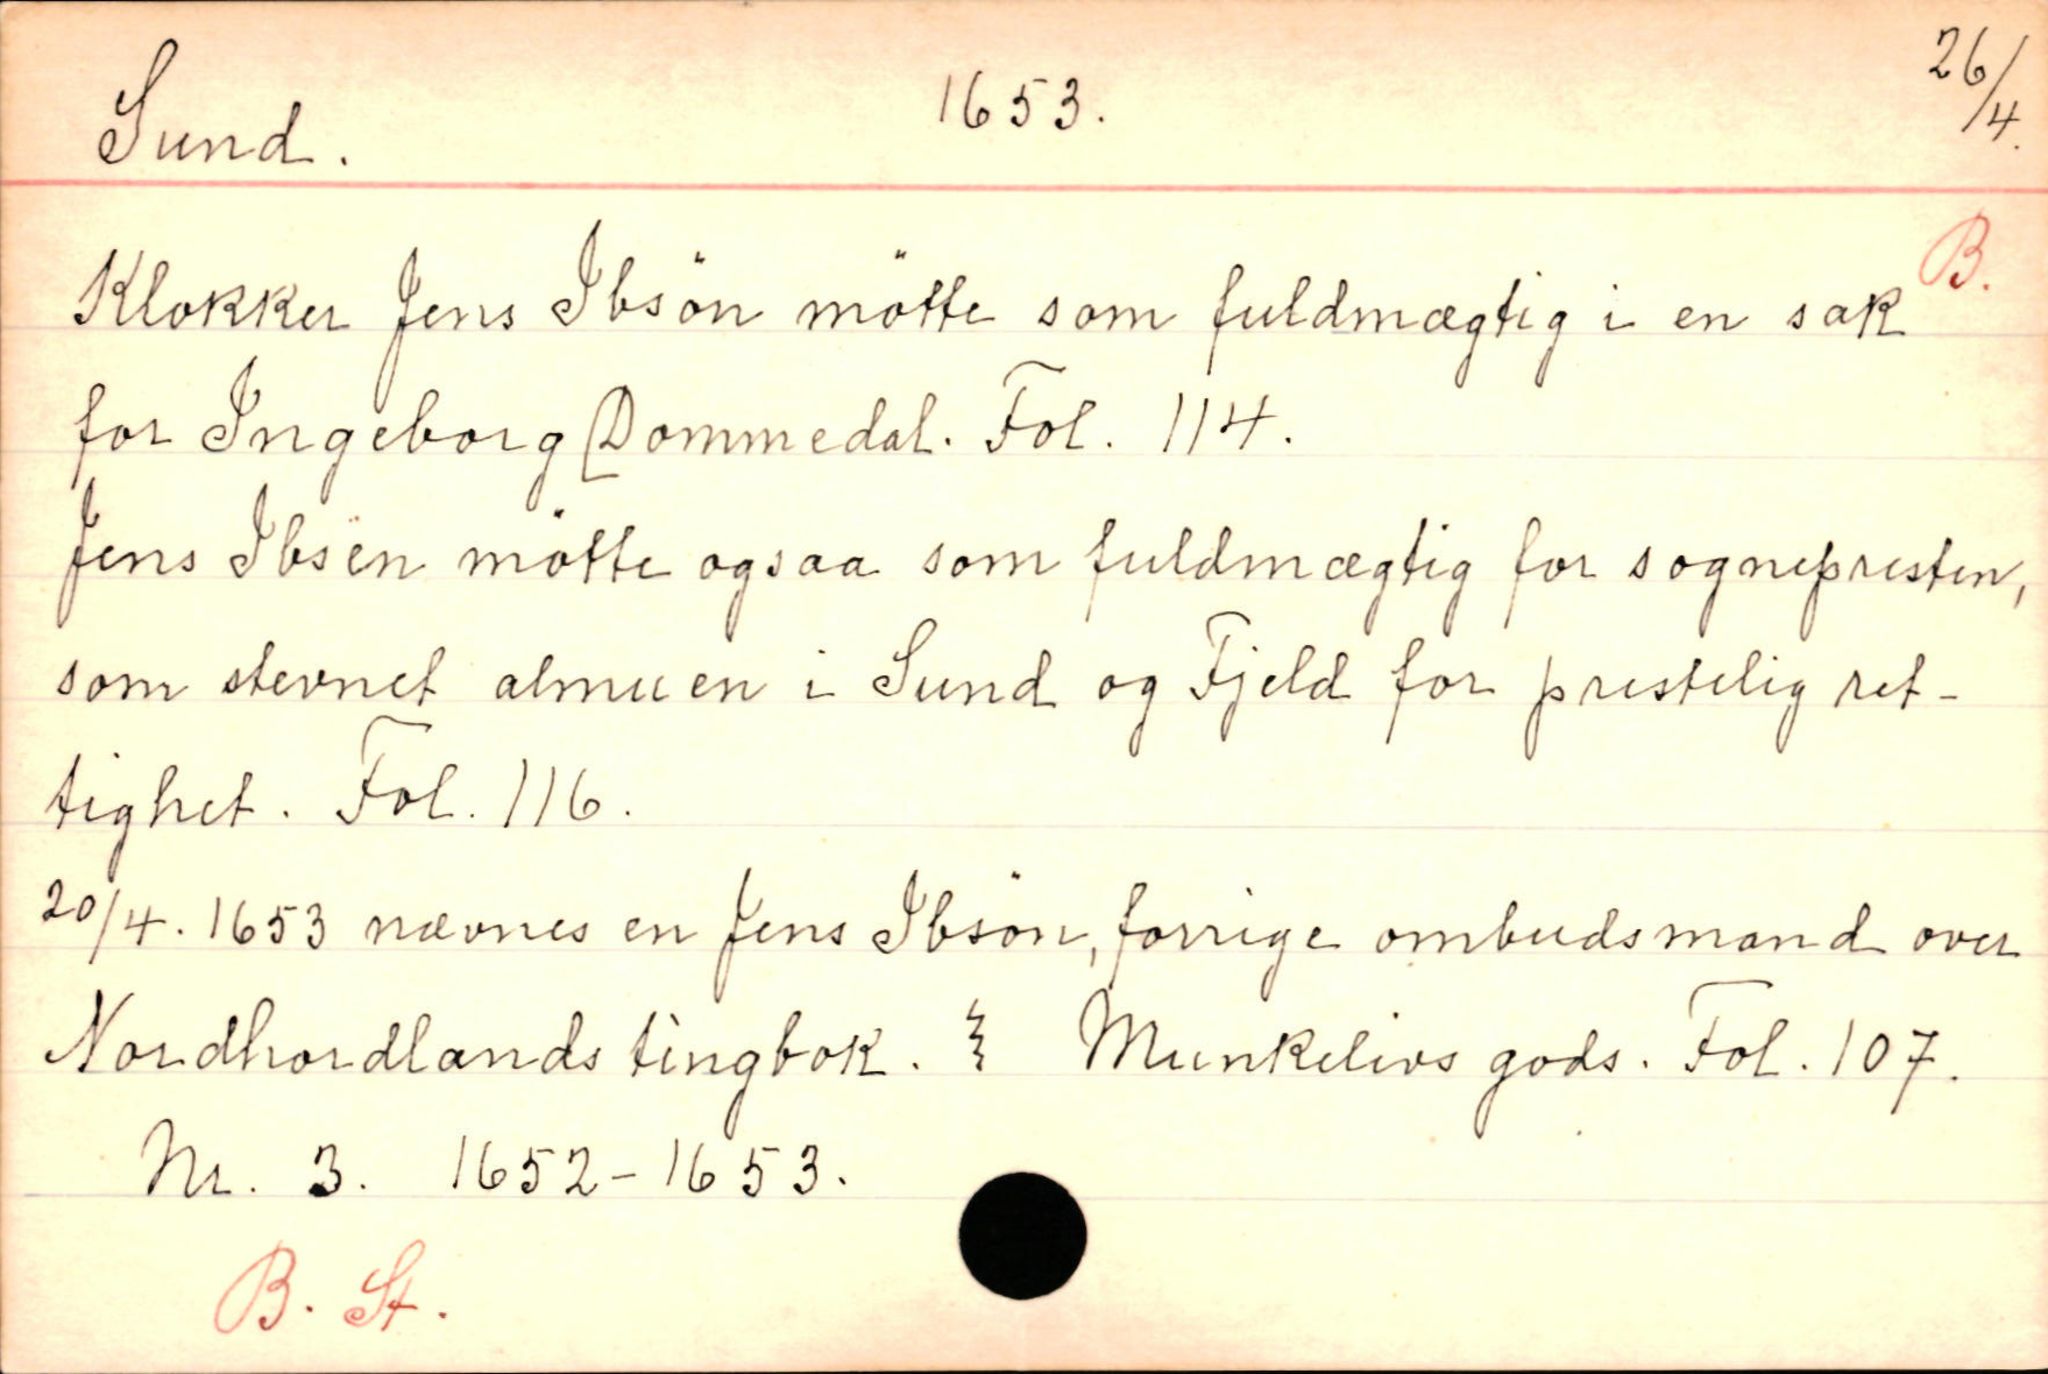 Sund. 1653. 26/4.
B.
Klokker Jens Ibsön mötte som fuldmægtig i en sak
for Ingeborg Dommedal. Fol. 114.
Jens Ibsën mötte ogsaa som fuldmægtig for sognepresten,
som stevnet almuen i Sund og Fjeld for prestelig ret-
tighet. Fol. 116.
20/4. 1653 nævnes en Jens Ibsön, forrige ombudsmand over
Nordhordlands tingbok. Munkelivs gods. Fol. 107.
Nr. 3. 1652-1653.
B. St.